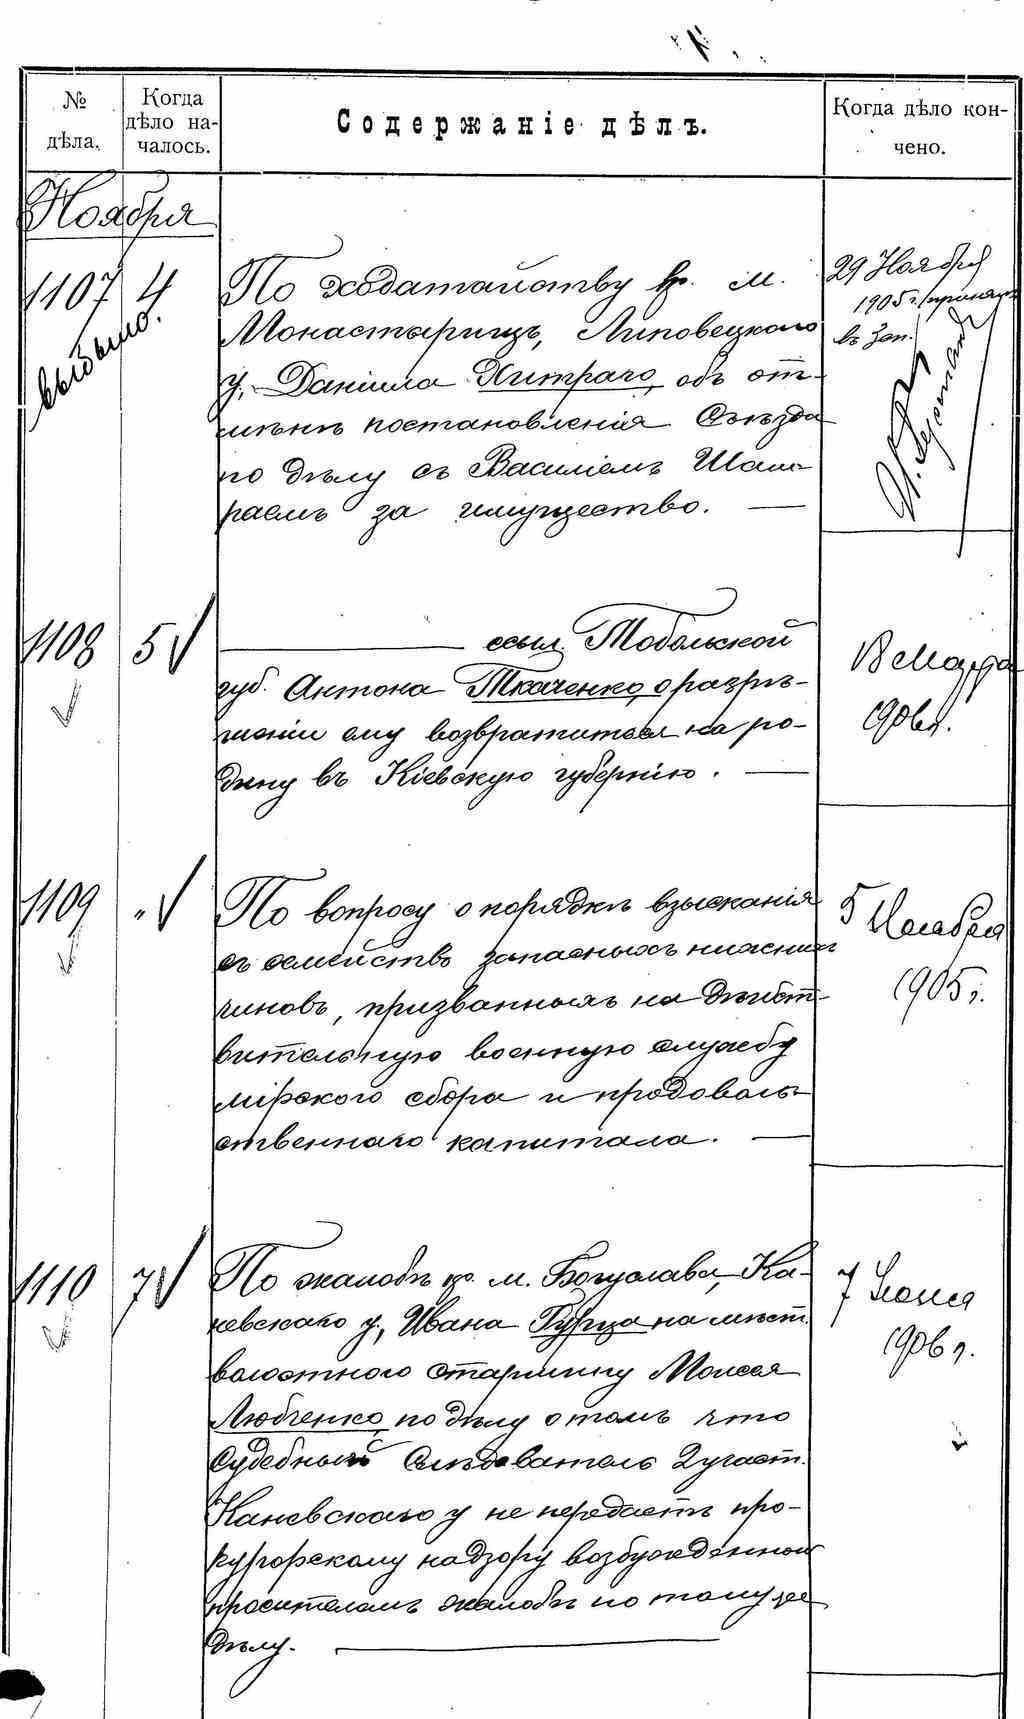 № дѣла.
Когда дѣло на-
чалось.
Содержаніе дѣлъ.
Когда дѣло кон-
чено.
Ноября
1107
выбыло.
4
По ходатайству кр. м.
Монастырищъ, Липовецкаго
у, Даніила Хитраго, объ от-
мѣнѣ постановленія Съѣзда
по дѣлу съ Василіемъ Шам-
раемъ за имущество.
29 Ноября
1905 г.
въ
1108
5
ссыл. Тобольской
губ. Антона Ткаченко, о разрѣ-
шеніи ему возвратиться на ро-
дину въ Кіевскую губернію.
Марта
1906 г.
1109
"
По вопросу о порядкѣ взысканія
съ семействъ запасныхъ нижнихъ
чиновъ, призванныхъ на дѣйст-
вительную военную службу
мірского сбора и продоволь-
ственнаго капитала.
5 Ноября
1905 г.
1110
7
По жалобѣ кр. м. Богуслава, Ка-
невскаго у, Ивана Гурца на мѣст.
волостного старшину Моисея
Любченко, по дѣлу о томъ что
Судебный Слѣдователь 2 участ.
Каневскаго у не передаетъ про-
курорскому надзору возбужденной
просителемъ жалобѣ по тому же
дѣлу.
7
1906 г.